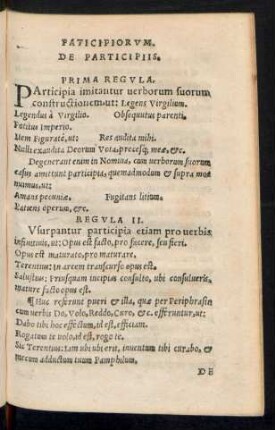 PATICIPIORVM.
DE PARTICIPIIS.
PRIMA REGVLA.
PArticipia imitantur uerborum suorum
constructionem, ut: Legens Virgilium.
Legendus à Virgilio. Obsequutus parenti.
Potitus imperio.
Item Figuratè, ut: Res audita mihi.
Nulli exaudita Deorum Vota, precesq́; meæ, &c.
Degenerant enim in Nomina, cum uerborum suorum
casum amittunt participia, quemadmodum & supra mo
nuimus. ut:
Amans pecuniæ. Fugitans litium.
Patiens operum, &c.
REGVLA II.
VSurpantur participia etiam pro uerbis
infinitiuis, ut: Opus est facto, pro facere, seu fieri.
Opus est maturato, pro maturare.
Terentius: In arcem transcurso opus est.
Salustius: Priusquam incipias consulto, ubi consulueris,
mature facto opus est.
¶ Huc referunt pueri & illa, quæ per Periphrasin
cum uerbis Do, Volo, Reddo, Curo, &c. efferuntur, ut:
Dabo tibi hoc effectum, id est, efficiam.
Rogatum te uolo, id est, rogo te.
Sic Terentius: Iam ubi ubi erit, inuentum tibi curabo, &
mecum adductum tuum Pamphilum.
DE